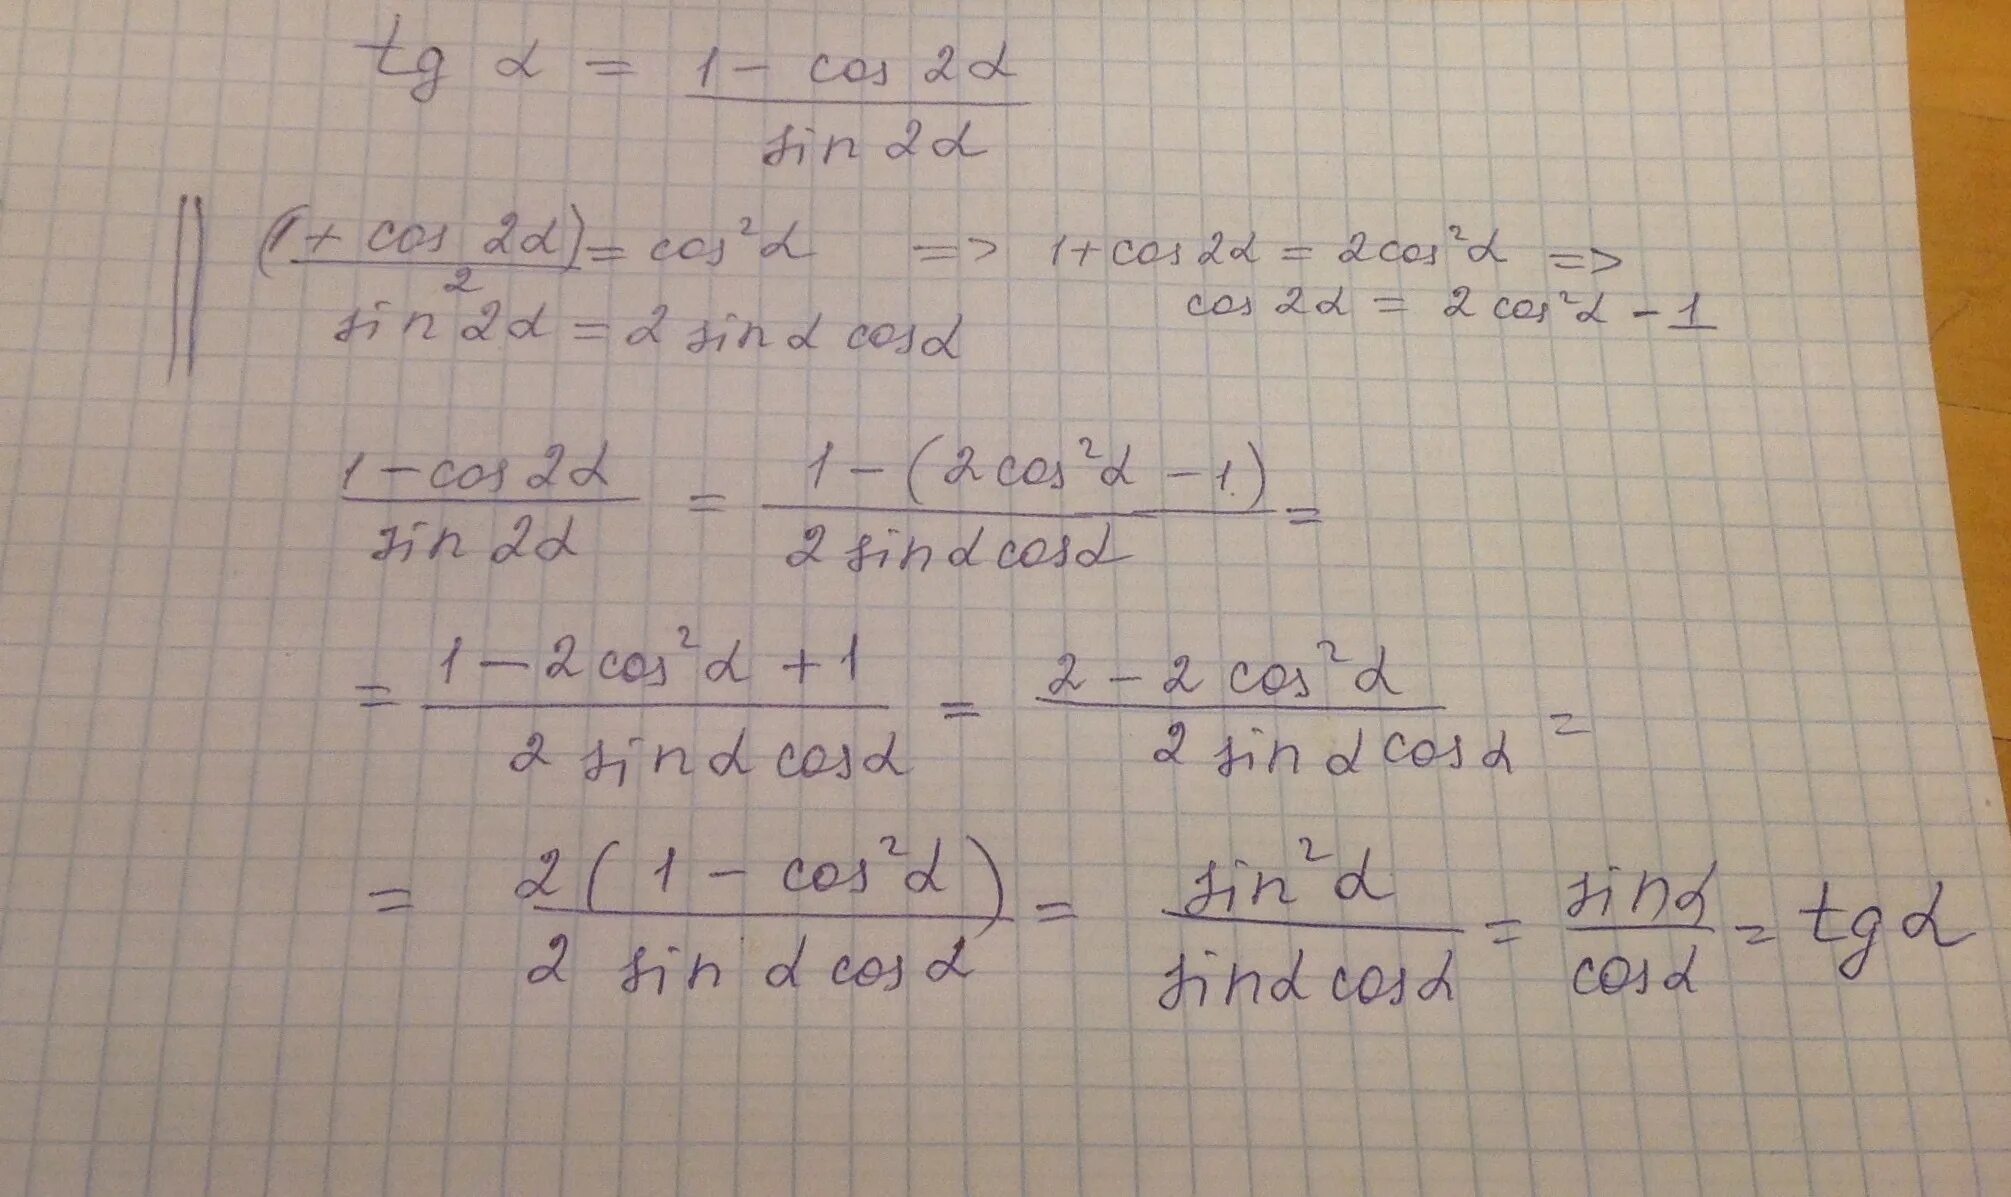 tg α = (1 - cos 2α) / (sin 2α)
(1 + cos 2α) / 2 = cos²α => 1 + cos 2α = 2cos²α =>
sin 2α = 2 sin α cos α cos 2α = 2 cos²α - 1
(1 - cos 2α) / (sin 2α) = (1 - (2cos²α - 1)) / (2 sin α cos α) =
= (1 - 2cos²α + 1) / (2 sin α cos α) = (2 - 2cos²α) / (2 sin α cos α) =
= (2(1 - cos²α)) / (2 sin α cos α) = (sin²α) / (sin α cos α) = (sin α) / (cos α) = tg α